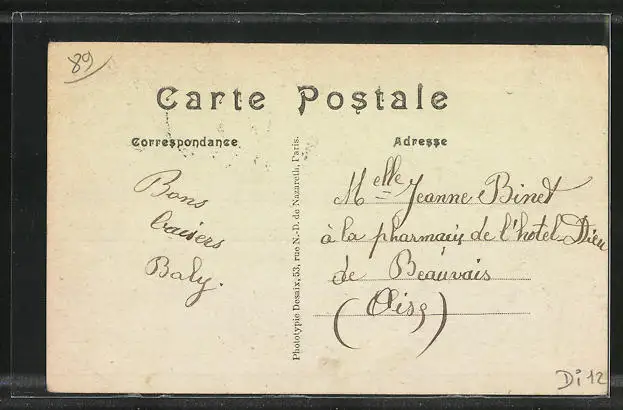 89
Carte Postale
Correspondance
Adresse
Bons
baisers
Baly.
Phototypie Desaix, 53, rue N.-D. de Nazareth, Paris.
Melle Jeanne Binet
à la pharmacie de l'hotel Dieu
de Beauvais
(Oise)
Di 12